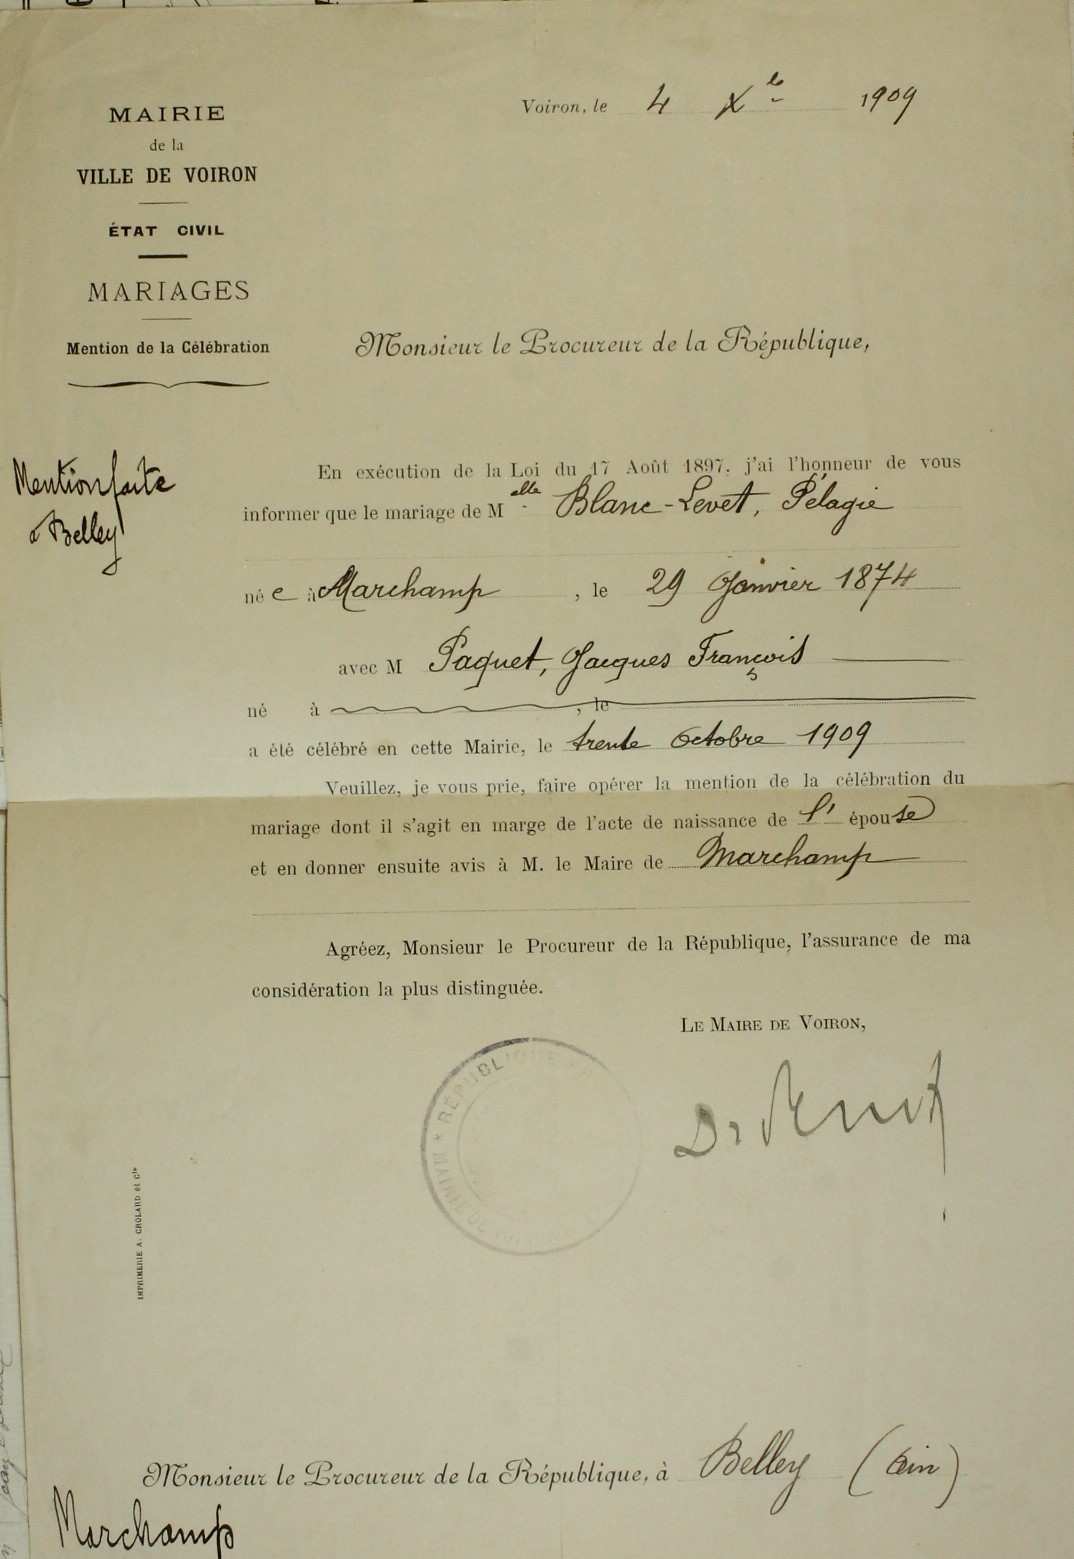 MAIRIE
de la
VILLE DE VOIRON
ÉTAT CIVIL
MARIAGES
Mention de la Célébration
Voiron, le 4 Xbre 1909
Monsieur le Procureur de la République,
Mention faite
à Belley
En exécution de la Loi du 17 Août 1897, j'ai l'honneur de vous
informer que le mariage de Melle Blanc-Levet, Pélagie
née à Marchamp, le 29 Janvier 1874
avec M Paquet, Jacques François
né à , le
a été célébré en cette Mairie, le trente Octobre 1909
Veuillez, je vous prie, faire opérer la mention de la célébration du
mariage dont il s'agit en marge de l'acte de naissance de l' épouse
et en donner ensuite avis à M. le Maire de Marchamp
Agréez, Monsieur le Procureur de la République, l'assurance de ma
considération la plus distinguée.
LE MAIRE DE VOIRON,
RÉPUBLIQUE
IMPRIMERIE A. CROLARD et Cie
Monsieur le Procureur de la République, à Belley (Ain)
Marchamp